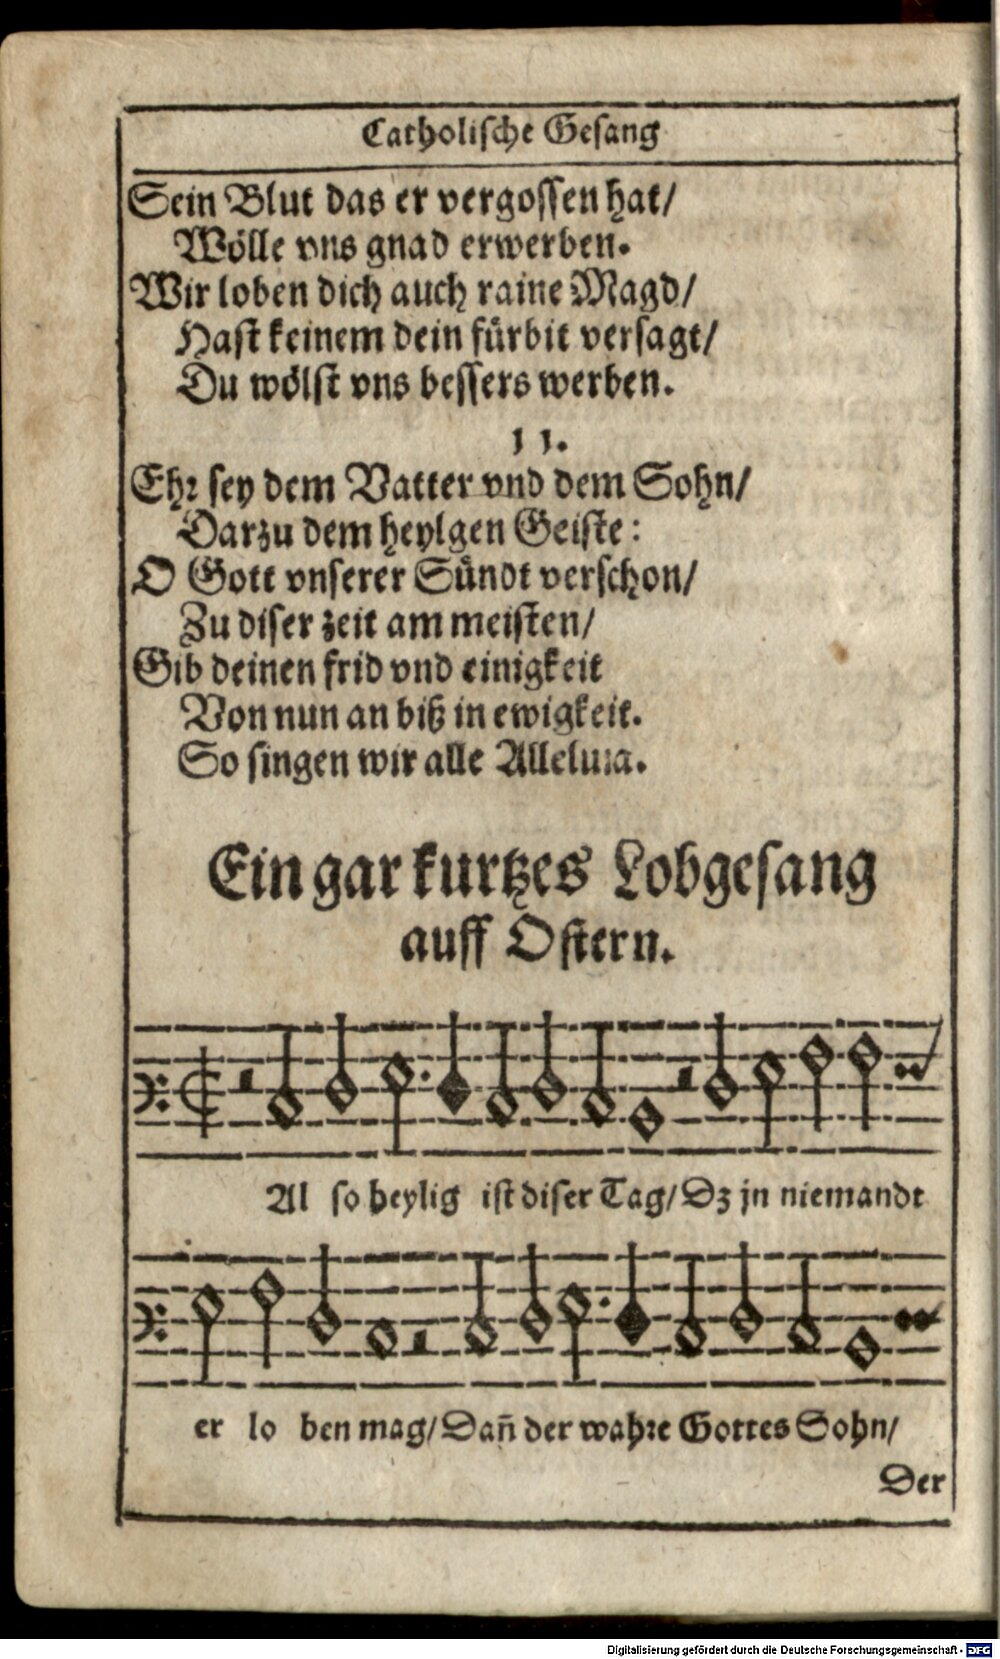 Catholische Gesang
Sein Blut das er vergossen hat/
Wölle vns gnad erwerben.
Wir loben dich auch raine Magd/
Hast keinem dein fürbit versagt/
Du wölst vns bessers werben.
11.
Ehr sey dem Vatter vnd dem Sohn/
Darzu dem heylgen Geiste:
O Gott vnserer Sündt verschon/
Zu diser zeit am meisten/
Gib deinen frid vnd einigkeit
Von nun an biß in ewigkeit.
So singen wir alle Alleluia.
Ein gar kurtzes Lobgesang
auff Ostern.
Al so heylig ist diser Tag/ Dz jn niemandt
er lo ben mag/ Dañ der wahre Gottes Sohn/
Der
Digitalisierung gefördert durch die Deutsche Forschungsgemeinschaft - DFG